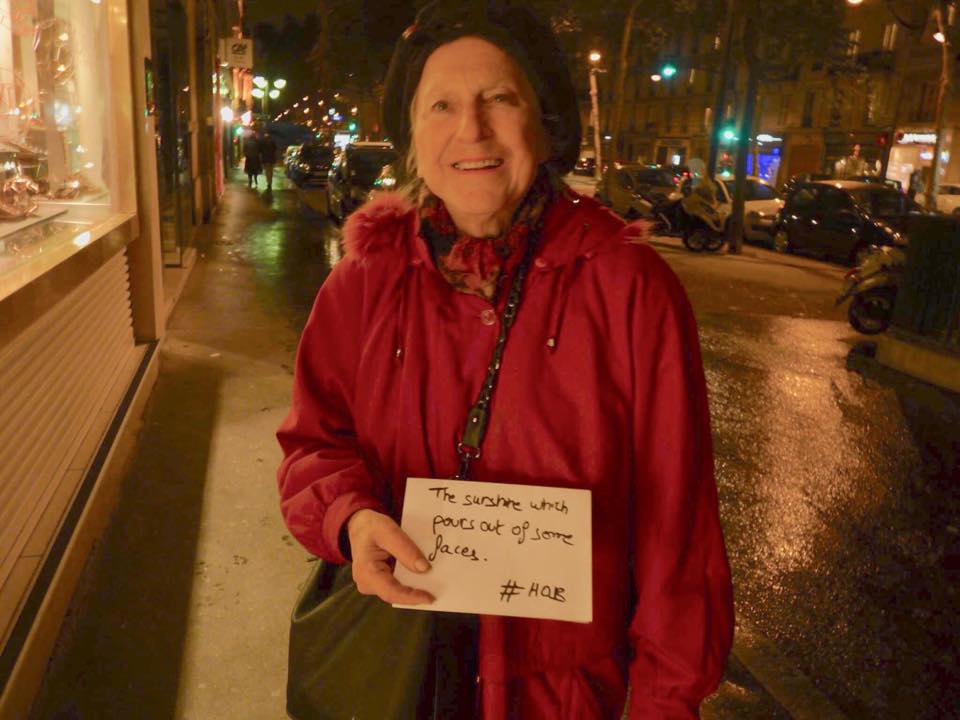 The sunshine which
pours out of some
faces.
# HOB